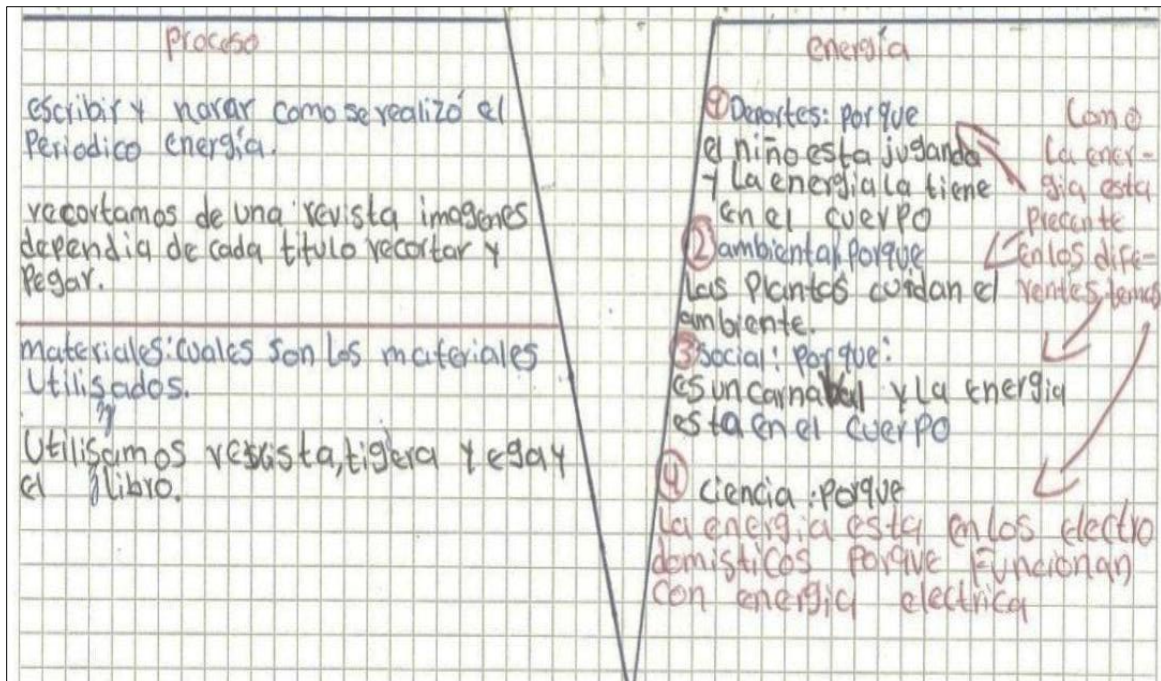 Proceso
escribir y narar como se realizó el
Periodico energía.
recortamos de una revista imagenes
dependia de cada titulo recortar y
Pegar.
materiales: cuales son los materiales
utilisados.
Utilisamos revista, tigera y egay
el libro.
energía
① Deportes: Porque
el niño esta jugando
y La energia la tiene
en el cuerpo
② ambiental Porque
Las Plantas cuidan el
ambiente.
③ Social: Porque:
es un carnabal y La energia
esta en el cuerpo
④ ciencia: Porque
La energia esta en los electro
domisticos Porque Funcionan
con energia electrica
Como
La ener-
gia esta
Precente
en los dife-
rentes temas